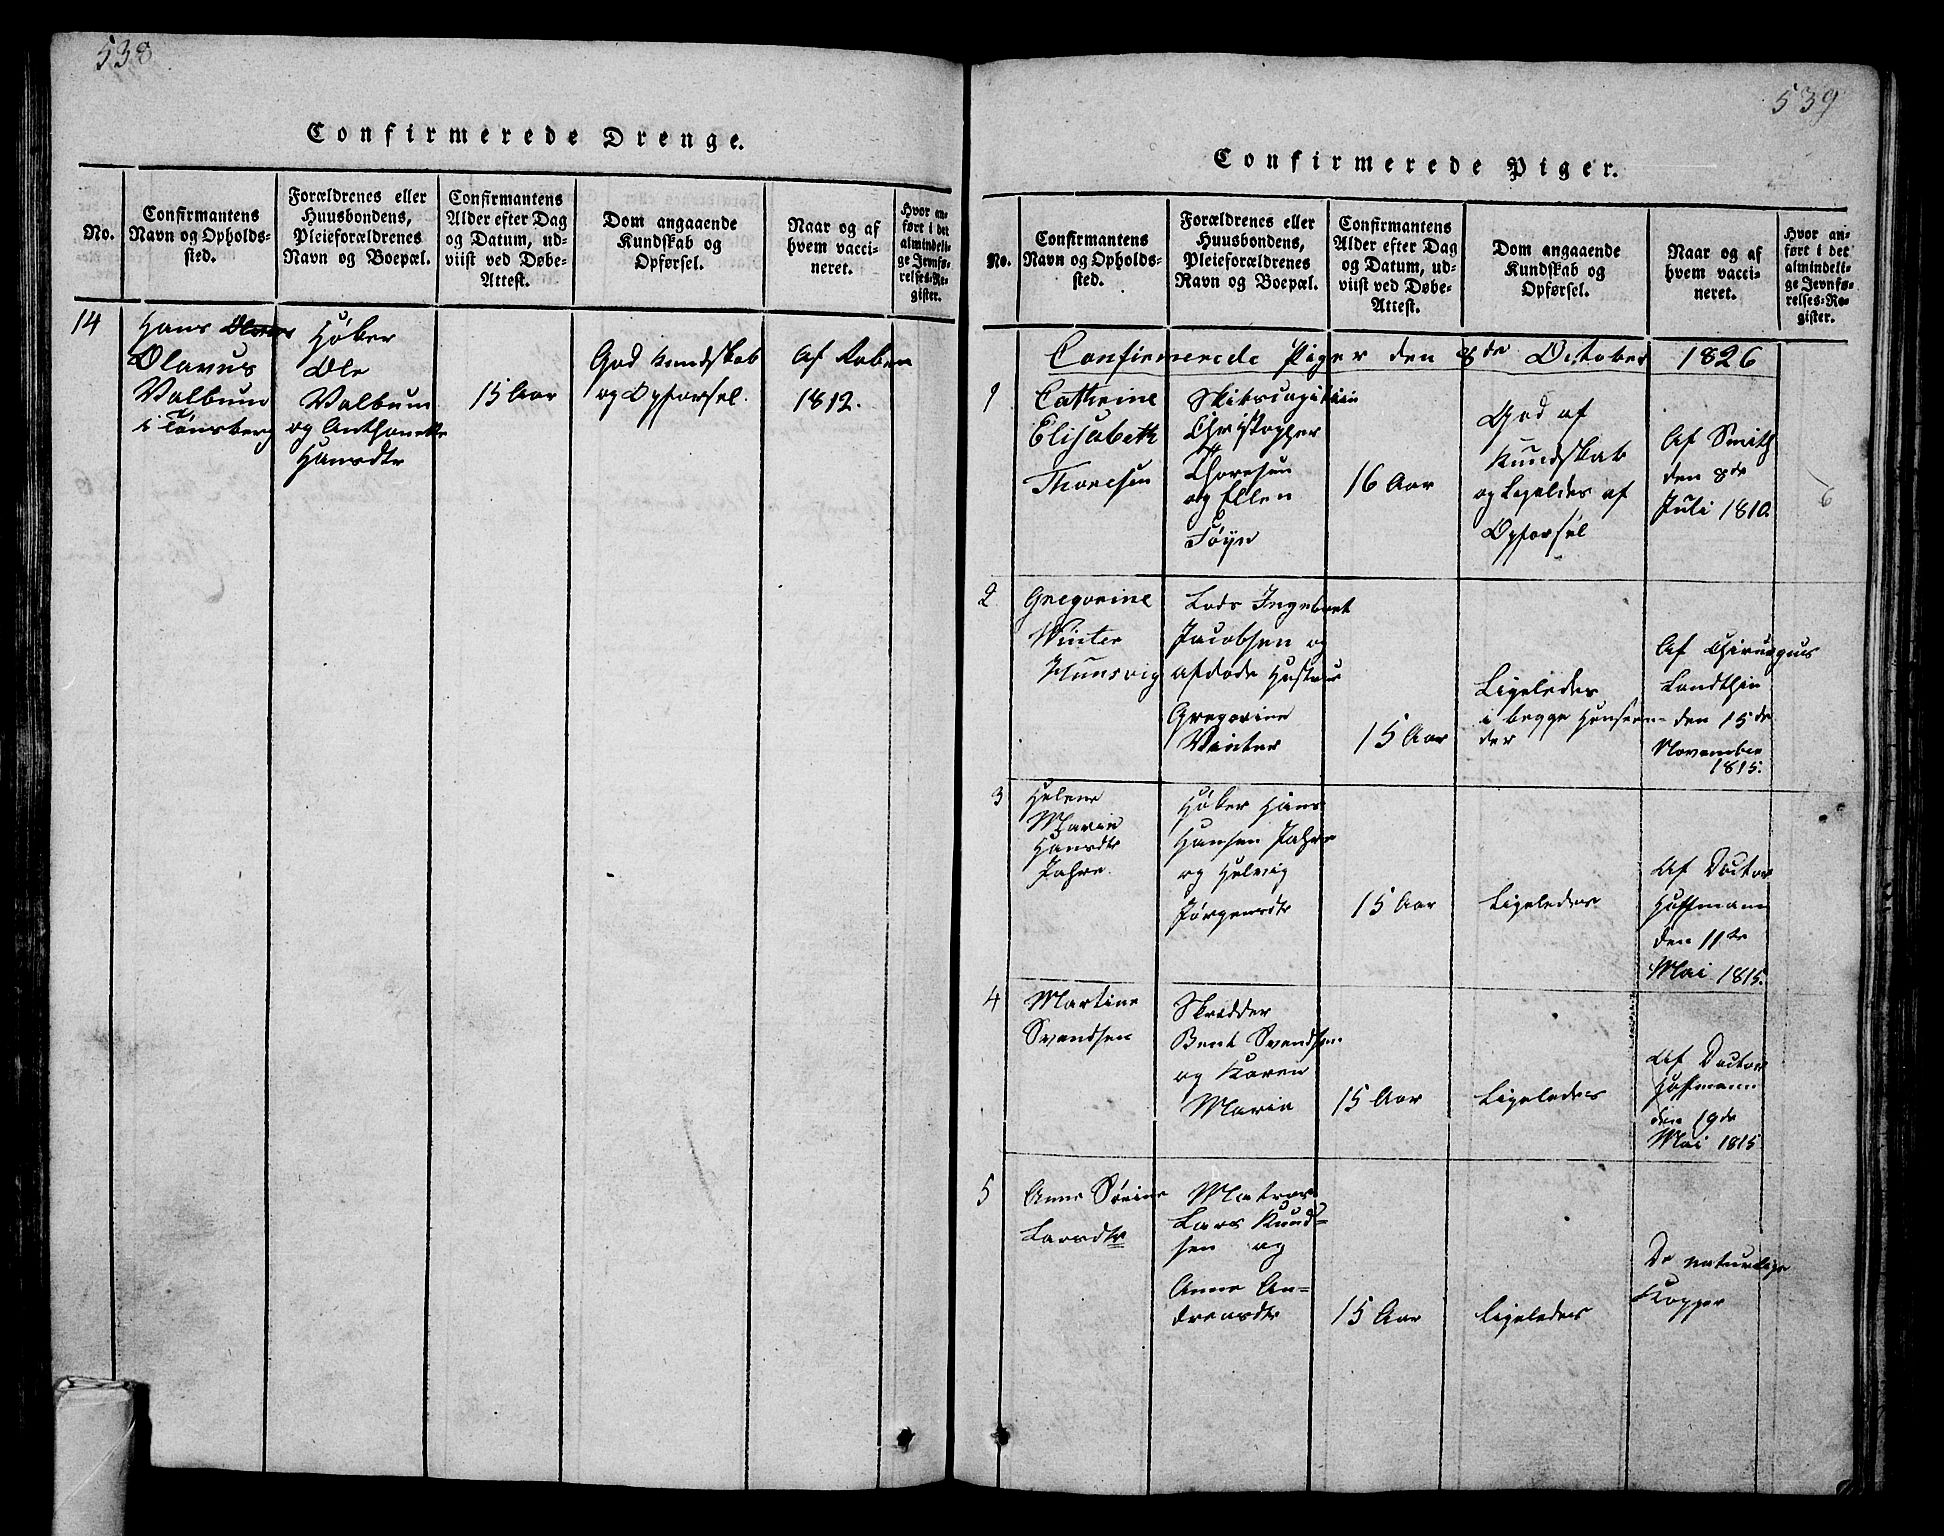 538
Confirmerede Drenge.
No.
Confirmantens
Navn og Opholds-
sted.
Forældrenes eller
Huusbondens,
Pleieforældrenes
Navn og Boepæl.
Confirmantens
Alder efter Dag
og Datum, ud-
viist ved Døbe-
Attest.
Dom angaaende
Kundskab og
Opførsel.
Naar og af
hvem vacci-
neret.
Hvor an-
ført i det
almindeli-
ge Jevnfø-
relses-Re-
gister.
14
Hans
Olavus
Valbum
i Tønsberg
Høker
Ole
Valbum
og Anthonette
Hansdtr
15 Aar
God Kundskab
og Opførsel.
Af Aaben
1812.
539
Confirmerede Piger.
No.
Confirmantens
Navn og Opholds-
sted.
Forældrenes eller
Huusbondens,
Pleieforældrenes
Navn og Boepæl.
Confirmantens
Alder efter Dag
og Datum, ud-
viist ved Døbe-
Attest.
Dom angaaende
Kundskab og
Opførsel.
Naar og af
hvem vacci-
neret.
Hvor an-
ført i det
almindeli-
ge Jevnfø-
relses-Re-
gister.
Confirmerede Piger den 8de October 1826
1
Cathrine
Elisabeth
Thoresen
Skibscapitain
Christopher
Thoresen
og Ellen
Føyn
16 Aar
God af
Kundskab
og Ligeledes af
Opførsel
Af Smith
den 8de
Juli 1810.
6
2
Gregorine
Winter
Lods Ingebret
Jacobsen og
afdøde Hustrue
Gregorine
Winter
15 Aar
Ligeledes
i begge Henseen-
der
Af Chirurgus
Landthin
den 15de
November
1815.
3
Helene
Marie
Hansdtr
Jahre.
Høker Hans
Hansen Jahre
og Helvig
Jørgensdtr
15 Aar
Ligeledes
Af Doctor
Hoffmann
den 11te
Mai 1815.
4
Martine
Svendsen
Skrædder
Bent Svendsen
og Karen
Marie
15 Aar
Ligeledes
Af Doctor
Hoffmann
den 19de
Mai 1815
5
Anne Sørine
Larsdtr
Matros
Lars Knud-
sen og
Anne An-
dreasdtr
15 Aar
Ligeledes
De naturlige
Kopper